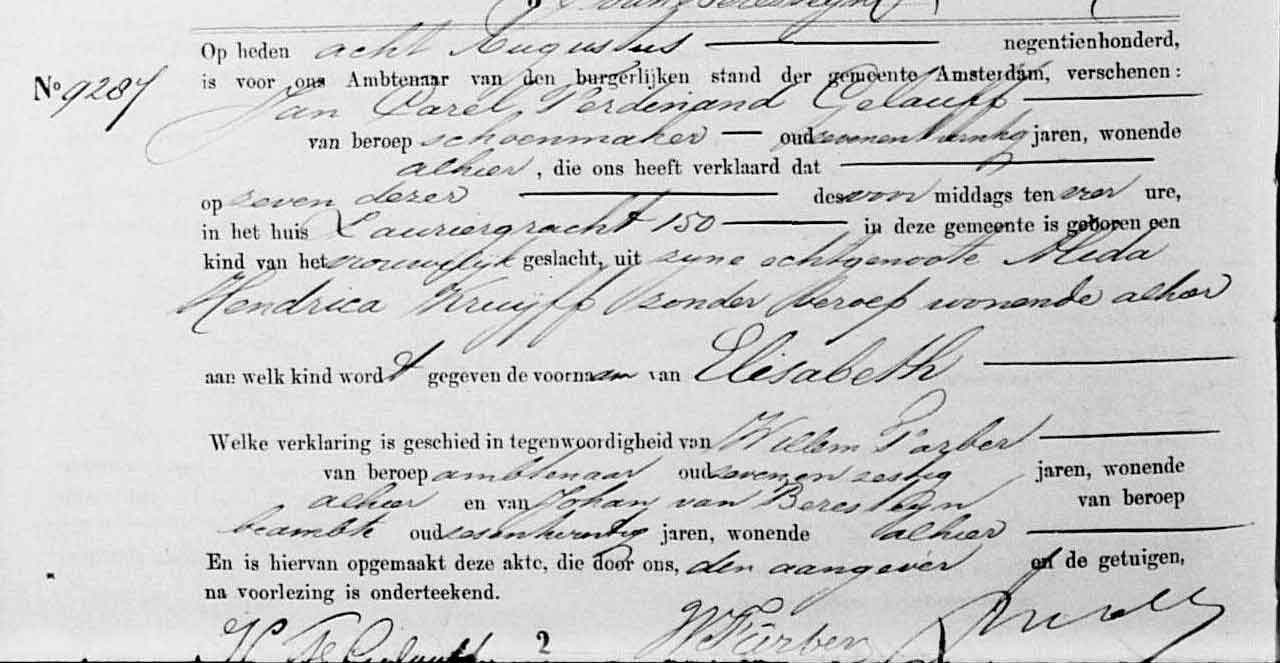 Op heden acht Augustus negentienhonderd,
No 9287
is voor ons Ambtenaar van den burgerlijken stand der gemeente Amsterdam, verschenen:
Jan Carel Ferdinand Gelauff
van beroep schoenmaker oud zevenentwintig jaren, wonende
alhier, die ons heeft verklaard dat
op zeven dezer des voor middags ten vier ure,
in het huis Lauriergracht 150 in deze gemeente is geboren een
kind van het vrouwelijk geslacht, uit zijne echtgenoote Alida
Hendrica Kruyff zonder beroep wonende alhier
aan welk kind wordt gegeven de voornaam van Elisabeth
Welke verklaring is geschied in tegenwoordigheid van Willem Färber
van beroep ambtenaar oud zevenenzestig jaren, wonende
alhier en van Johan van Beresteyn van beroep
beambte oud zesentwintig jaren, wonende alhier
En is hiervan opgemaakt deze akte, die door ons, den aangever en de getuigen,
na voorlezing is onderteekend.
Gelauff 2 W Färber